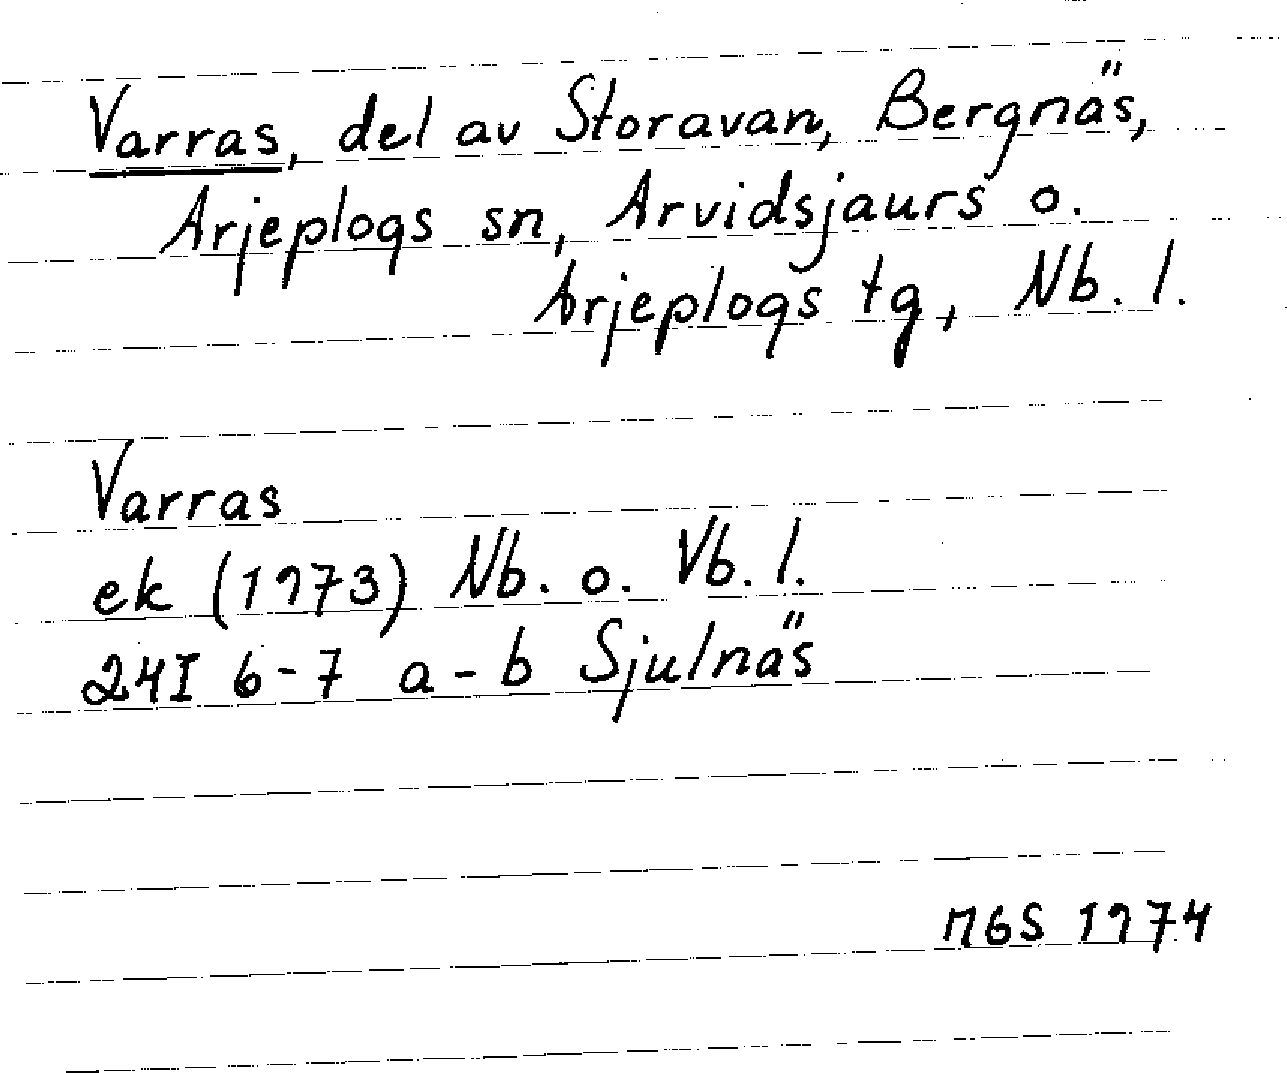 Varras, del av Storavan, Bergnäs,
Arjeplogs sn, Arvidsjaurs o.
Arjeplogs tg, Nb. l.
Varras
ek (1973) Nb. o. Vb. l.
24I 6-7 a-b Sjulnäs
MGS 1974